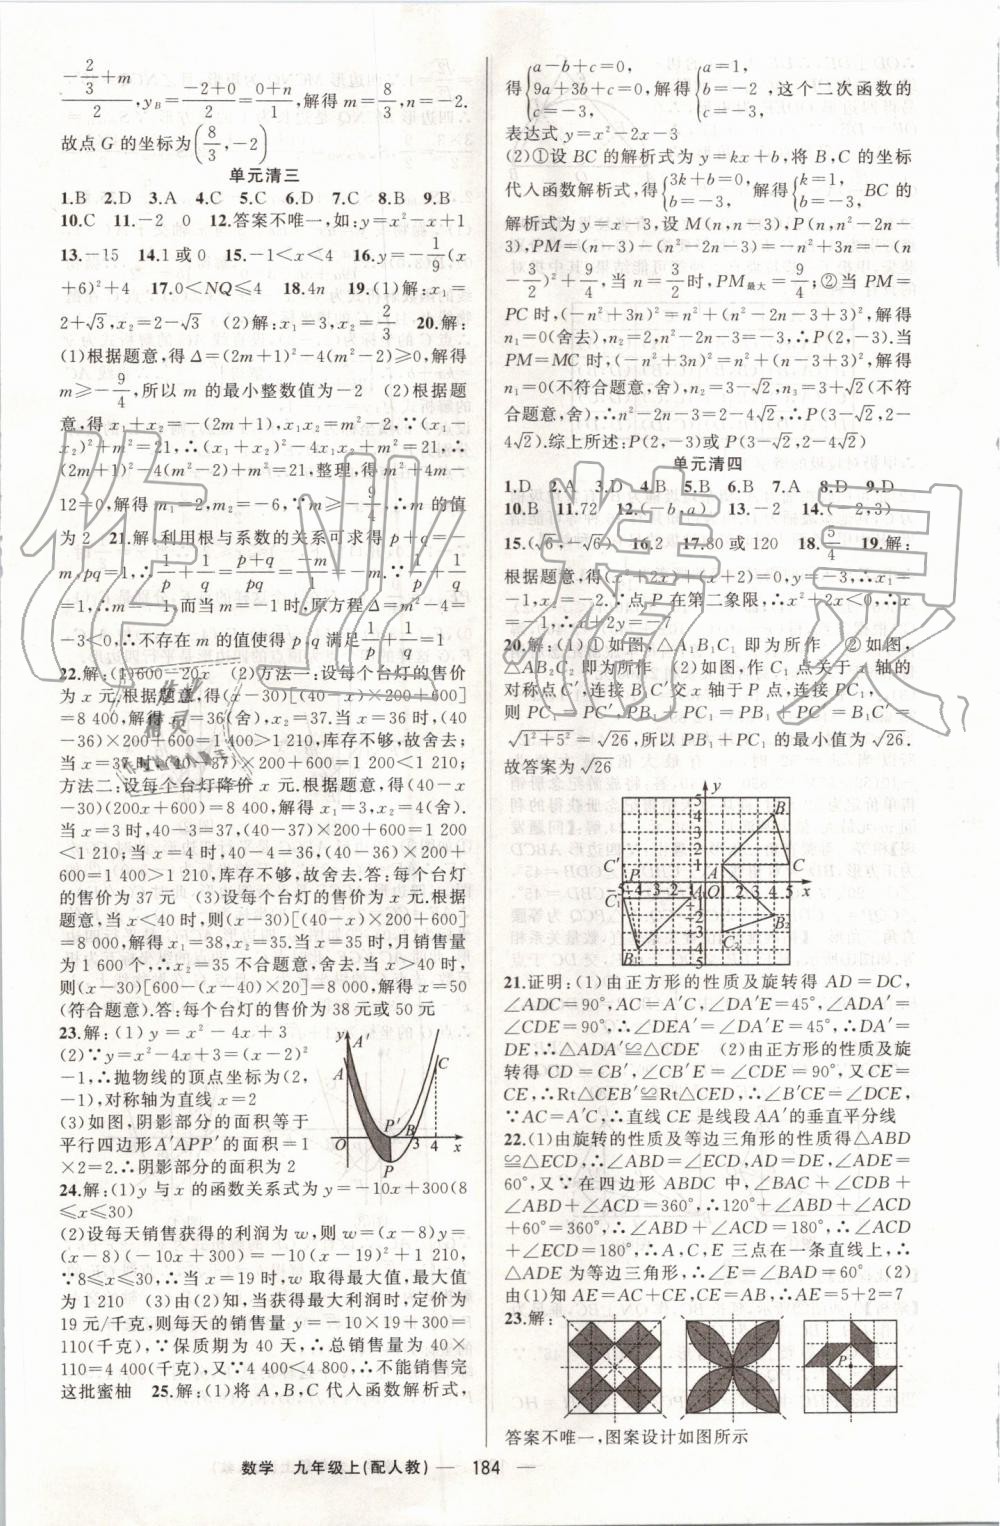 (-2/3+m)/2, y_B=(-2+0)/2=(0+n)/1, 解得 m=8/3, n=-2.
故点 G 的坐标为(8/3, -2)
单元清三
1.B 2.D 3.A 4.C 5.C 6.D 7.C 8.B 9.B
10.C 11.-2 0 12.答案不唯一,如:y=x²-x+1
13.-15 14.1或0 15.-1<x<4 16.y=-1/9(x
+6)²+4 17.0<NQ≤4 18.4n 19.(1)解:x₁=
2+√3,x₂=2-√3 (2)解:x₁=3,x₂=2/3 20.解:
(1)根据题意,得 Δ=(2m+1)²-4(m²-2)≥0,解得
m≥-9/4,所以 m 的最小整数值为-2 (2)根据题
意,得 x₁+x₂=-(2m+1),x₁x₂=m²-2,∵(x₁-
x₂)²+m²=21,∴(x₁+x₂)²-4x₁x₂+m²=21,∴
(2m+1)²-4(m²-2)+m²=21,整理,得 m²+4m-
12=0,解得 m₁=2,m₂=-6,∵m≥-9/4,∴m 的值
为 2 21.解:利用根与系数的关系可求得 p+q=-
m,pq=1,∴1/p+1/q=(p+q)/pq=-m/1=-m,∵1/p+1/q
=1,∴m=-1,而当 m=-1 时,原方程 Δ=m²-4=
-3<0,∴不存在 m 的值使得 p,q 满足1/p+1/q=1
22.解:(1)600-20x (2)方法一:设每个台灯的售价
为 x 元.根据题意,得(x-30)[(40-x)×200+600]
=8 400,解得 x₁=36(舍),x₂=37.当 x=36 时,(40
-36)×200+600=1 400>1 210,库存不够,故舍去;
当 x=37 时,(40-37)×200+600=1 200<1 210;
方法二:设每个台灯降价 x 元.根据题意,得(40-x
-30)(200x+600)=8 400,解得 x₁=3,x₂=4(舍).
当 x=3 时,40-3=37,(40-37)×200+600=1 200
<1 210;当 x=4 时,40-4=36,(40-36)×200+
600=1 400>1 210,库存不够,故舍去.答:每个台灯
的售价为 37 元 (3)设每个台灯的售价为 x 元.根据
题意,当 x<40 时,则(x-30)[(40-x)×200+600]
=8 000,解得 x₁=38,x₂=35.当 x=35 时,月销售量
为 1 600 个,∴x=35 不合题意,舍去.当 x>40 时,
则(x-30)[600-(x-40)×20]=8 000,解得 x=50
(符合题意).答:每个台灯的售价为 38 元或 50 元
23.解:(1)y=x²-4x+3
(2)∵y=x²-4x+3=(x-2)²
-1,∴抛物线的顶点坐标为(2,
-1),对称轴为直线 x=2
(3)如图,阴影部分的面积等于
平行四边形A′APP′的面积=1
×2=2.∴阴影部分的面积为 2
y A′ A C P′ B O 3 4 x P
24.解:(1)y 与 x 的函数关系式为 y=-10x+300(8
≤x≤30)
(2)设每天销售获得的利润为 w,则 w=(x-8)y=
(x-8)(-10x+300)=-10(x-19)²+1 210,
∵8≤x≤30,∴当 x=19 时,w 取得最大值,最大值
为 1 210 (3)由(2)知,当获得最大利润时,定价为
19 元/千克,则每天的销售量为 y=-10×19+300=
110(千克),∵保质期为 40 天,∴总销售量为 40×
110=4 400(千克),又∵4 400<4 800,∴不能销售完
这批蜜柚 25.解:(1)将 A,B,C 代入函数解析式,
得{a-b+c=0, 9a+3b+c=0, c=-3, 解得{a=1, b=-2, c=-3, 这个二次函数的
表达式 y=x²-2x-3
(2)①设 BC 的解析式为 y=kx+b,将 B,C 的坐标
代入函数解析式,得{3k+b=0, b=-3, 解得{k=1, b=-3, BC 的
解析式为 y=x-3,设 M(n,n-3),P(n,n²-2n-
3),PM=(n-3)-(n²-2n-3)=-n²+3n=-(n
-3/2)²+9/4,当 n=3/2时,PM最大=9/4;②当 PM=
PC 时,(-n²+3n)²=n²+(n²-2n-3+3)²,解得
n₁=0(舍去),n₂=2,n²-2n-3=-3,∴P(2,-3).当
PM=MC 时,(-n²+3n)²=n²+(n-3+3)²,解得
n₁=0(不符合题意,舍),n₂=3-√2,n₃=3+√2(不符
合题意,舍),∴n²-2n-3=2-4√2,∴P(3-√2,2-
4√2).综上所述:P(2,-3)或 P(3-√2,2-4√2)
单元清四
1.D 2.A 3.D 4.B 5.B 6.B 7.A 8.D 9.D
10.B 11.72 12.(-b,a) 13.-2 14.(-2,3)
15.(√6,-√6) 16.2 17.80 或 120 18.5/4 19.解:
根据题意,得(x²+2x)+(x+2)=0,y=-3,∴x₁=
-1,x₂=-2.∵点 P 在第二象限,∴x²+2x<0,∴x
=-1,∴x+2y=-7
20.解:(1)①如图,△A₁B₁C₁ 即为所作 ②如图,
△AB₂C₂ 即为所作 (2)如图,作 C₁ 点关于 x 轴的
对称点C′,连接 B₁C′交 x 轴于 P 点,连接 PC₁,
则 PC₁=PC′,PB₁+PC₁=PB₁+PC′=B₁C′=
√(1²+5²)=√26,所以 PB₁+PC₁ 的最小值为√26.
故答案为√26
21.证明:(1)由正方形的性质及旋转得 AD=DC,
∠ADC=90°,AC=A′C,∠DA′E=45°,∠ADA′=
∠CDE=90°,∴∠DEA′=∠DA′E=45°,∴DA′=
DE,∴△ADA′≌△CDE (2)由正方形的性质及旋
转得 CD=CB′,∠CB′E=∠CDE=90°,又 CE=
CE,∴Rt△CEB′≌Rt△CED,∴∠B′CE=∠DCE,
∵AC=A′C,∴直线 CE 是线段 AA′的垂直平分线
22.(1)由旋转的性质及等边三角形的性质得△ABD
≌△ECD,∴∠ABD=∠ECD,AD=DE,∠ADE=
60°,又∵在四边形 ABDC 中,∠BAC+∠CDB+
∠ABD+∠ACD=360°,∴120°+∠ABD+∠ACD
+60°=360°,∴∠ABD+∠ACD=180°,∴∠ACD+
∠ECD=180°,∴A,C,E 三点在一条直线上,∴
△ADE 为等边三角形,∴∠E=∠BAD=60° (2)
由(1)知 AE=AC+CE,CE=AB,∴AE=5+2=7
23.解:
答案不唯一,图案设计如图所示
数学 九年级上(配人教) — 184 —